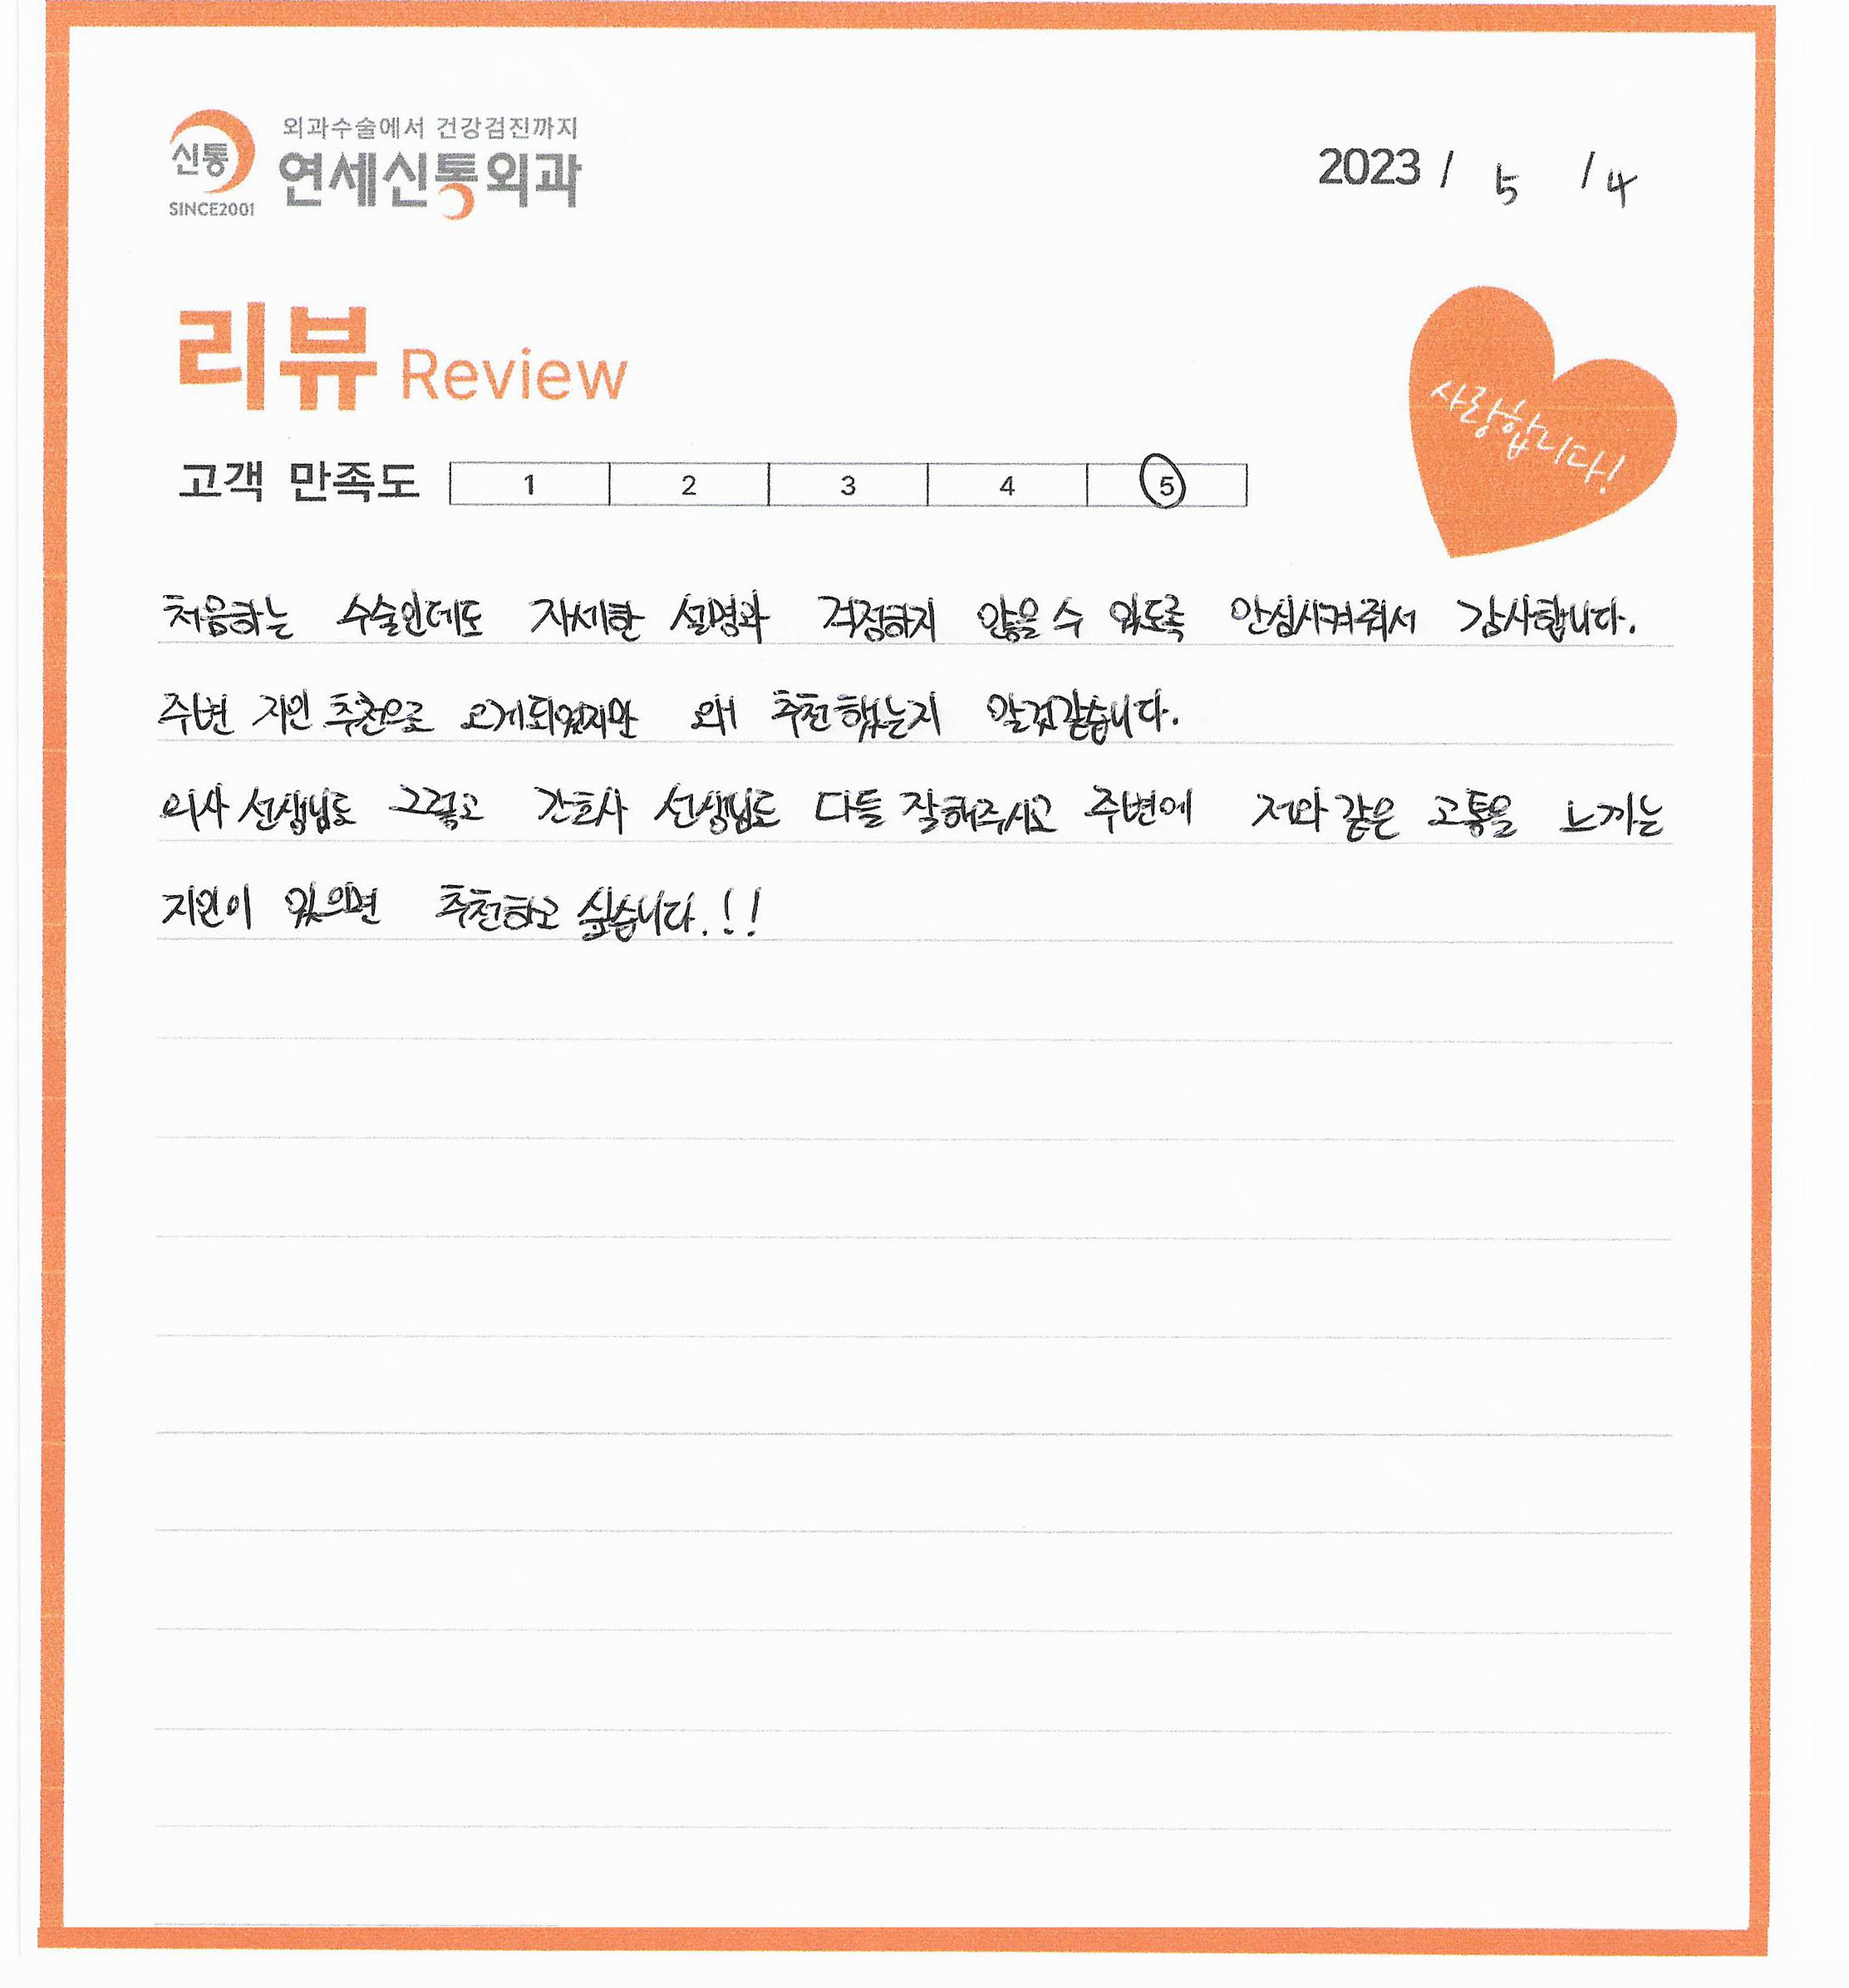 신통
SINCE2001
외과수술에서 건강검진까지
연세신통외과
2023 / 5 / 4
리뷰 Review
사랑합니다!
고객 만족도 1 2 3 4 5
처음하는 수술인데도 자세한 설명과 걱정하지 않을 수 있도록 안심시켜줘서 감사합니다.
주변 지인 추천으로 오게되었지만 왜 추천했는지 알겄같습니다.
의사 선생님도 그렇고 간호사 선생님도 다들 잘해주시고 주변에 저와 같은 고통을 느끼는
지인이 있으면 추천하고 싶습니다.!!